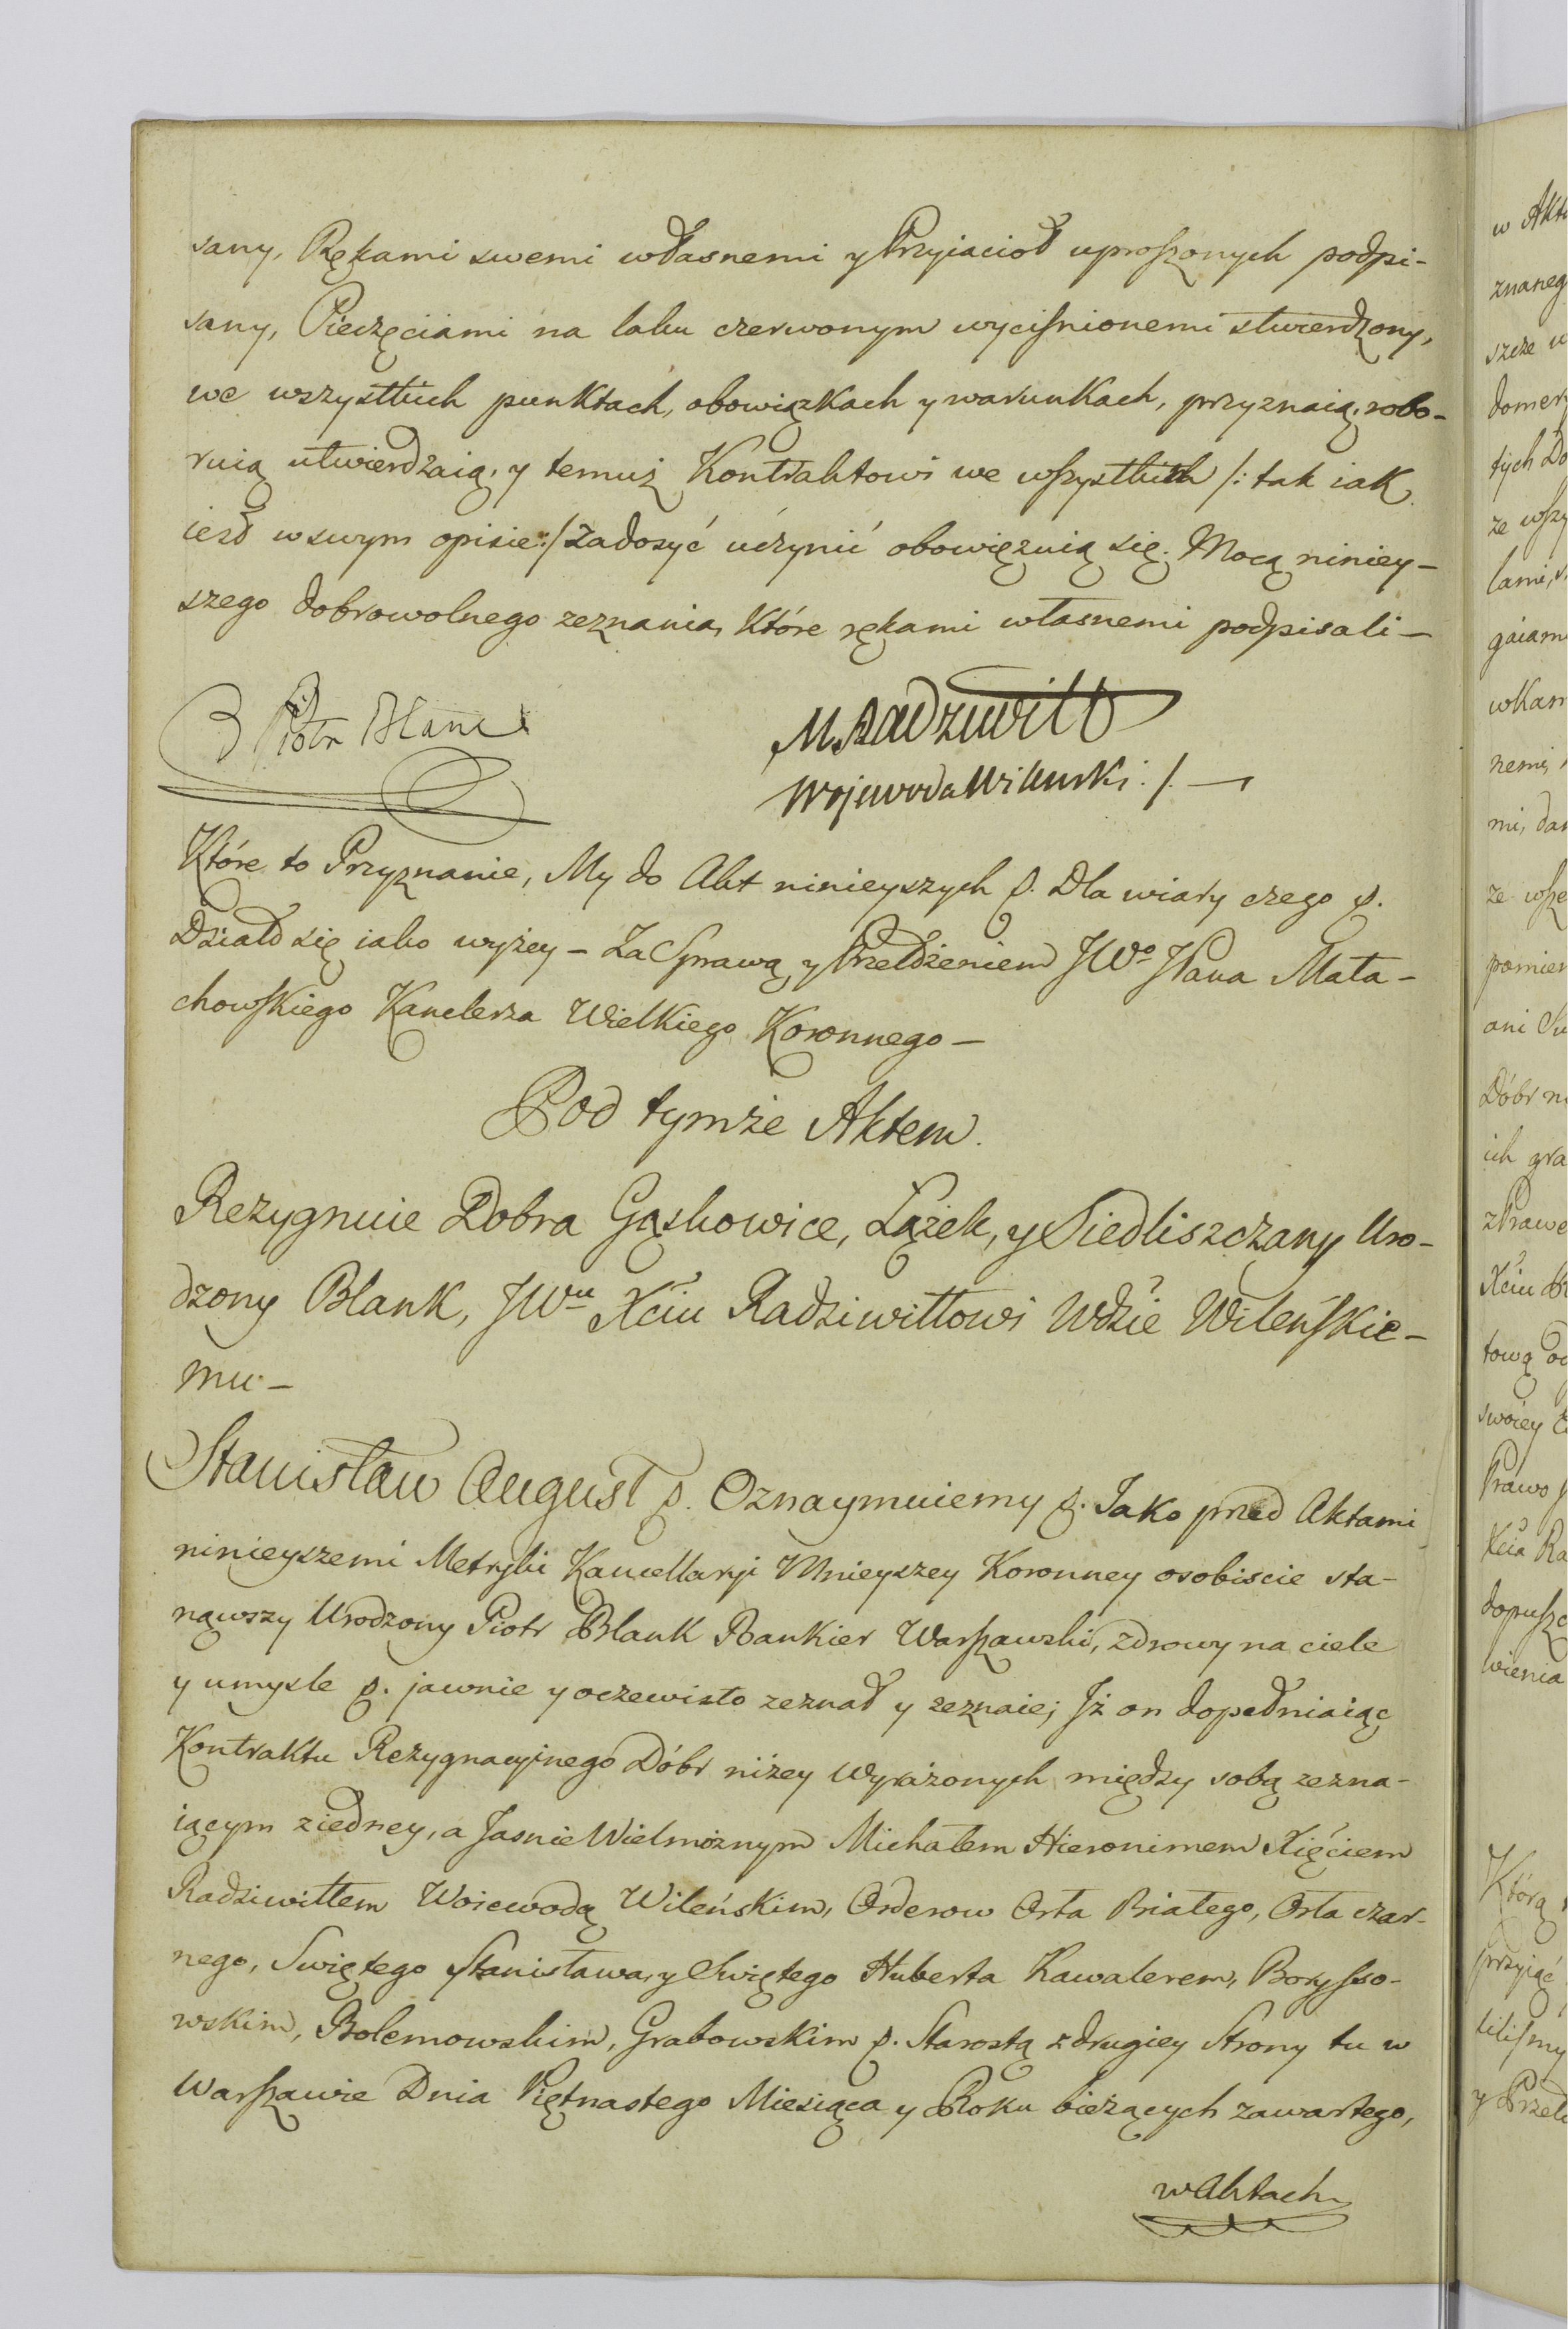 sany, Rękami swemi własnemi y Przyiacioł uproszonych podpi-
sany, Pieczęciami na laku czerwonym wyciśnionemi stwierdzony,
we wszystkich punktach, obowiązkach y warunkach, przyznaią, robo-
ruią utwierdzaią, y temuż Kontraktowi we wszystkich /: tak iak
iest w swym opisie :/ zadosyć uczynić obowięzuią się. Mocą niniey-
szego dobrowolnego zeznania, które rękami własnemi podpisali —
Piotr Blanc
M. Radziwiłł
Wojewoda Wileński ./. —
Które to Przyznanie, My do Akt ninieyszych p. Dla wiary czego p.
Działo się iako wyżey – Za Sprawą y Przełożeniem JWo JPana Mała-
chowskiego Kanclerza Wielkiego Koronnego —
Pod tymże Aktem.
Rezygnuie Dobra Gąskowice, Łążek, y Siedliszczany Uro-
dzony Blank, JWu Xciu Radziwiłłowi Wdzie Wileńskie-
mu —
Stanisław August p. Oznaymuiemy p. Jako przed Aktami
ninieyszemi Metryki Kancellaryi Mnieyszey Koronney osobiscie sta-
nąwszy Urodzony Piotr Blank Bankier Warszawski, zdrowy na ciele
y umysle p. jawnie y oczewisto zeznał y zeznaie; Jż on dopełniaiąc
Kontraktu Rezygnacyjnego Dóbr niżey wyrażonych między sobą zezna-
iącym z iedney, a Jasnie Wielmożnym Michałem Hieronimem Xięciem
Radziwiłłem Woiewodą Wileńskim, Orderow Orła Białego, Orła czar-
nego, Swiętego Stanisława, y Swiętego Huberta Kawalerem, Borysso-
wskim, Bolemowskim, Grabowskim p. Starostą z drugiey Strony tu w
Warszawie Dnia Piętnastego Miesiąca y Roku bieżących zawartego,
w Aktach